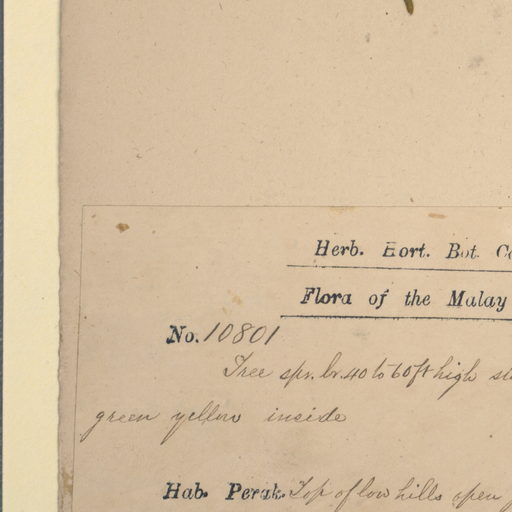 Herb. Hort. Bot.
Flora of the Malay
No. 10801
Tree spr. br. 40 to 60 ft high
green yellow inside
Hab. Perak. Top of low hills open